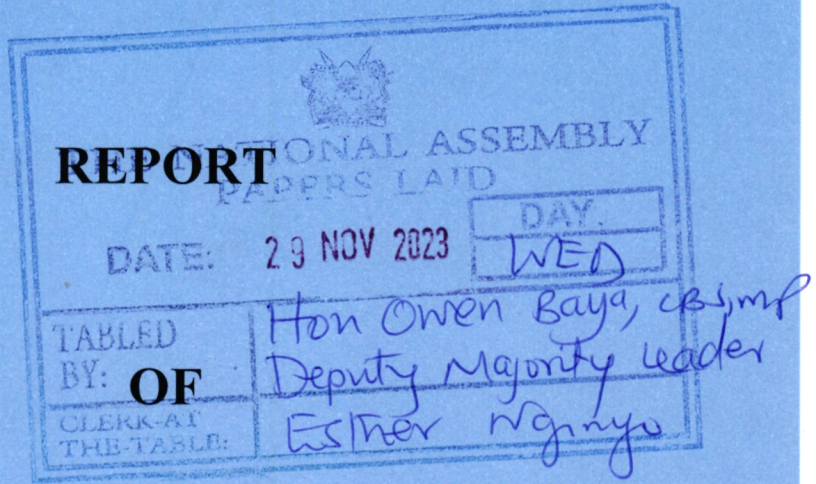 THE NATIONAL ASSEMBLY
REPORT
PAPERS LAID
DATE: 29 NOV 2023
DAY.
WED
TABLED BY:
Hon Owen Baya, CBS, MP
Deputy Majority Leader
OF
CLERK-AT THE-TABLE:
Esther Nginyo